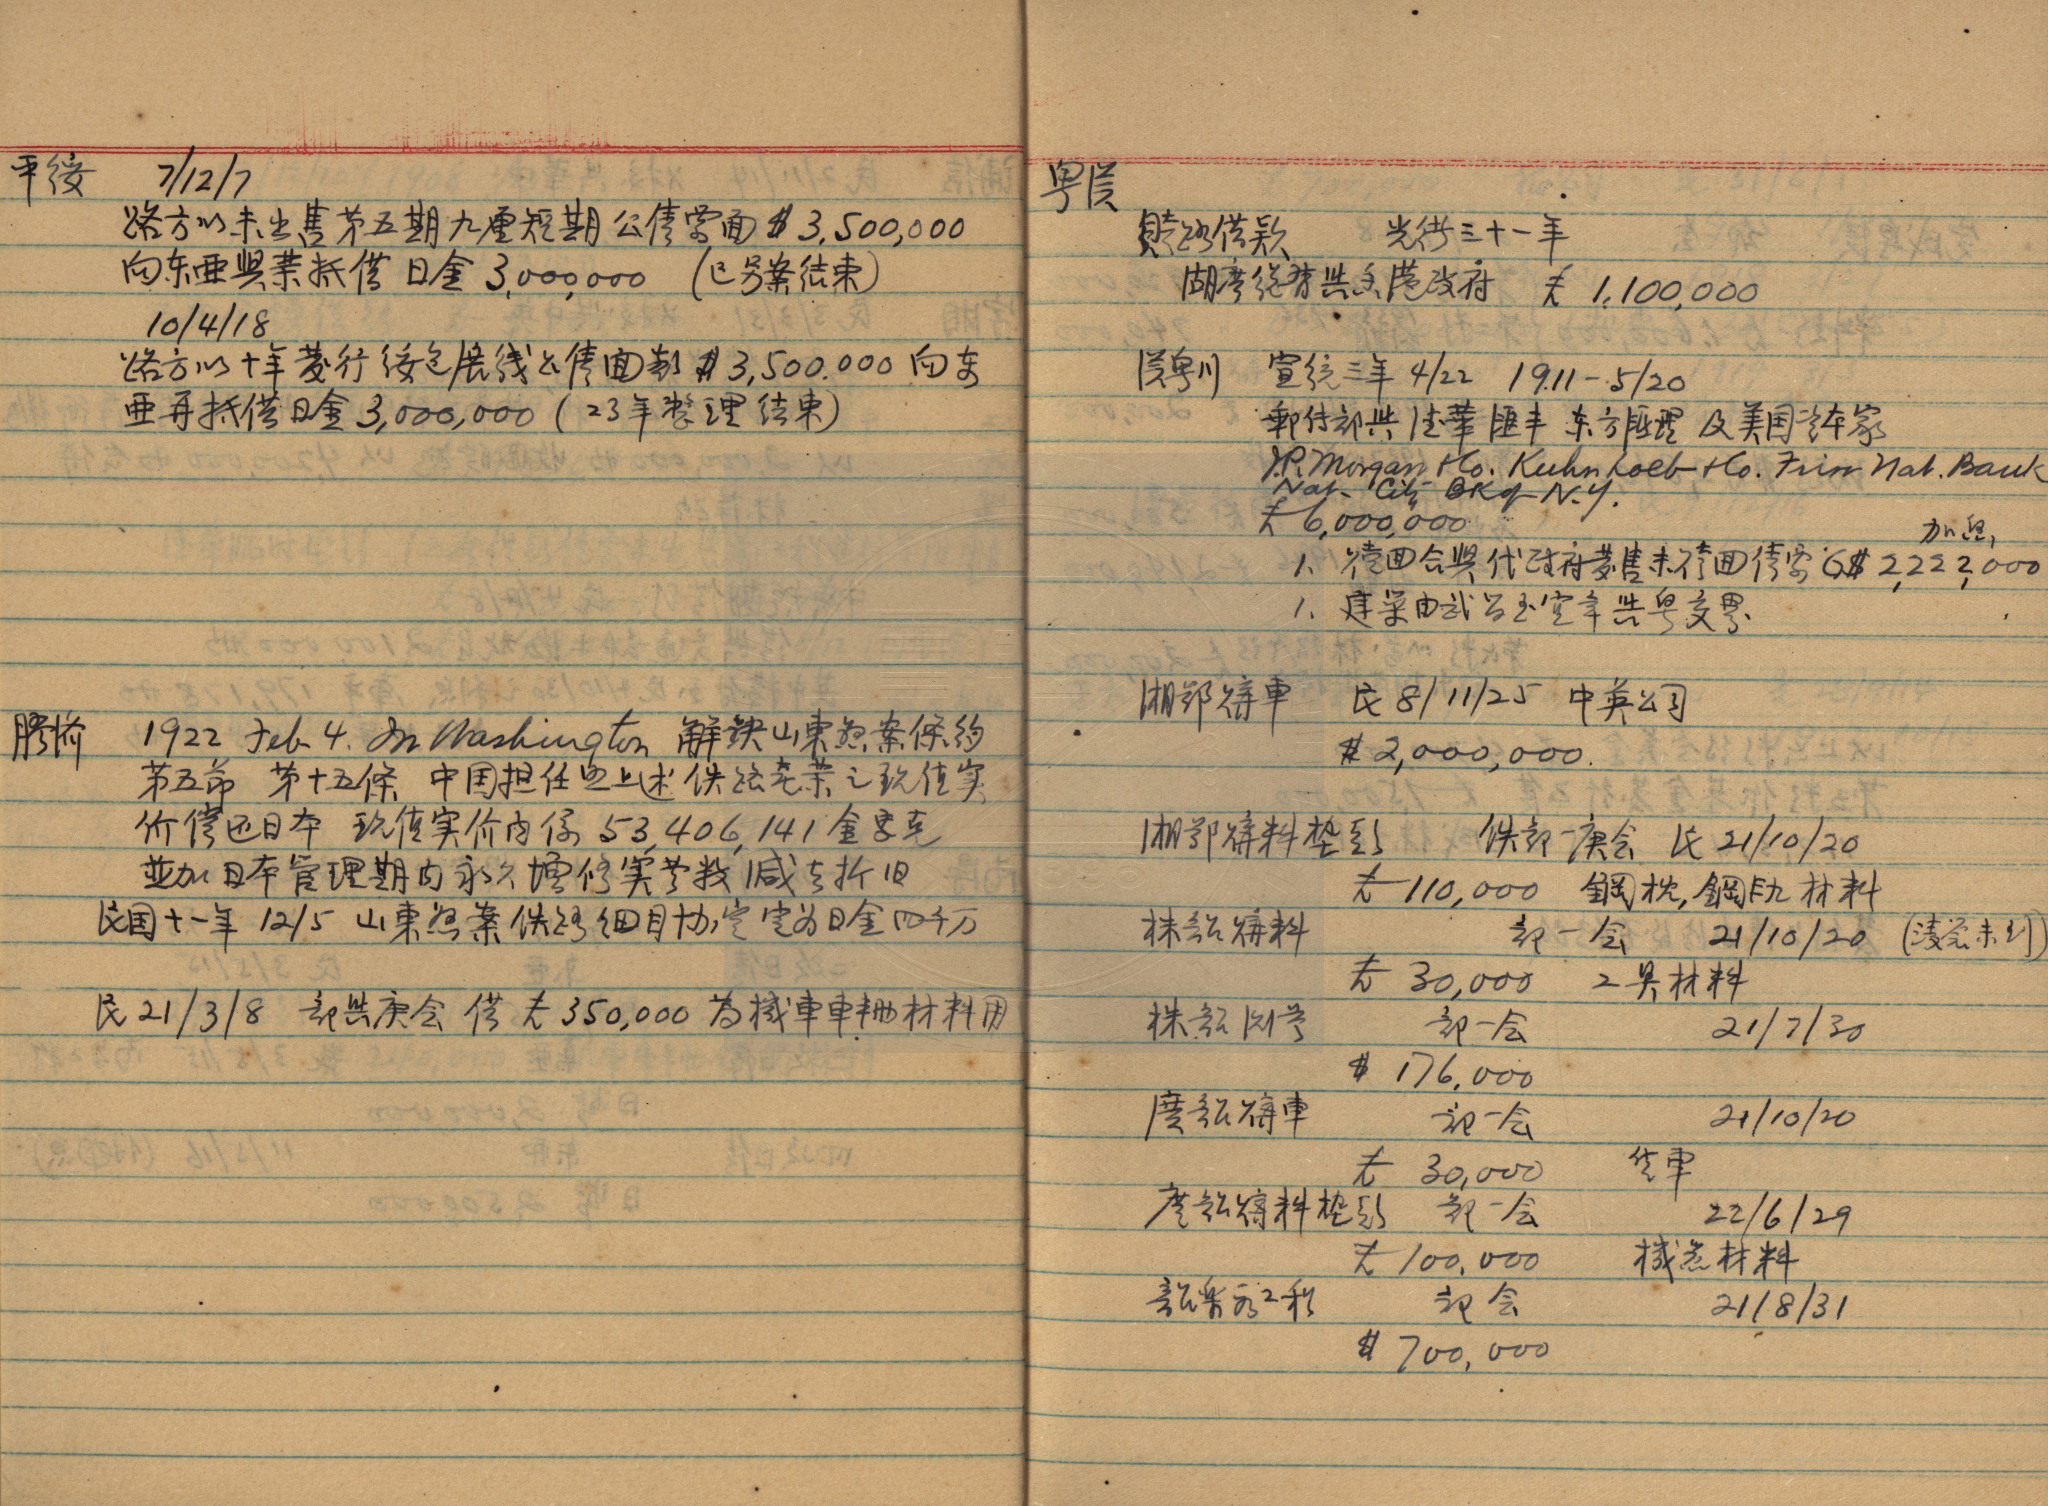 平绥 7/12/7
路方以未出售第五期九厘短期公债票面$3,500,000
向东亜興業抵借日金3,000,000 (已另案结束)
10/4/18
路方以十年發行绥包展线公债面额$3,500.000向东
亜再抵借日金3,000,000 (23年整理结束)
膠济 1922 Feb 4. In Washington 解決山東懸案條約
第五節 第十五條 中国担任照上述铁路产業之现值实
价偿还日本 现值实价内係53,406,141金馬克
並加日本管理期内永久增修实费 减去折旧
民国十一年12/5 山東懸案铁路细目协定定为日金四千万
民21/3/8 部與庚会借£350,000为機車車輛材料用
粤汉
贖路借款 光绪三十一年
湖廣總督與香港政府 £1,100,000
汉粤川 宣统三年4/22 1911-5/20
郵传部與德華 匯丰 东方匯理 及美国资本家
J.P. Morgan & Co. Kuhn Loeb & Co. First Nat. Bank
Nat. City Bk of N.Y.
£6,000,000
加息,
1. 贖回合興代政府發售未贖回债票G$2,222,000
1. 建築由武昌至宜章與粤交界
湘鄂購車 民8/11/25 中英公司
$2,000,000.
湘鄂購料垫款 铁部-庚会 民21/10/20
£110,000 鋼枕,鋼轨材料
株韶購料 部-会 21/10/20
£30,000 工具材料
株韶 部-会 21/7/30
$176,000
廣韶購車 部-会 21/10/20
£30,000 货車
廣韶購料垫款 部-会 22/6/29
£100,000 機煮材料
韶樂 工程 部会 21/8/31
$700,000